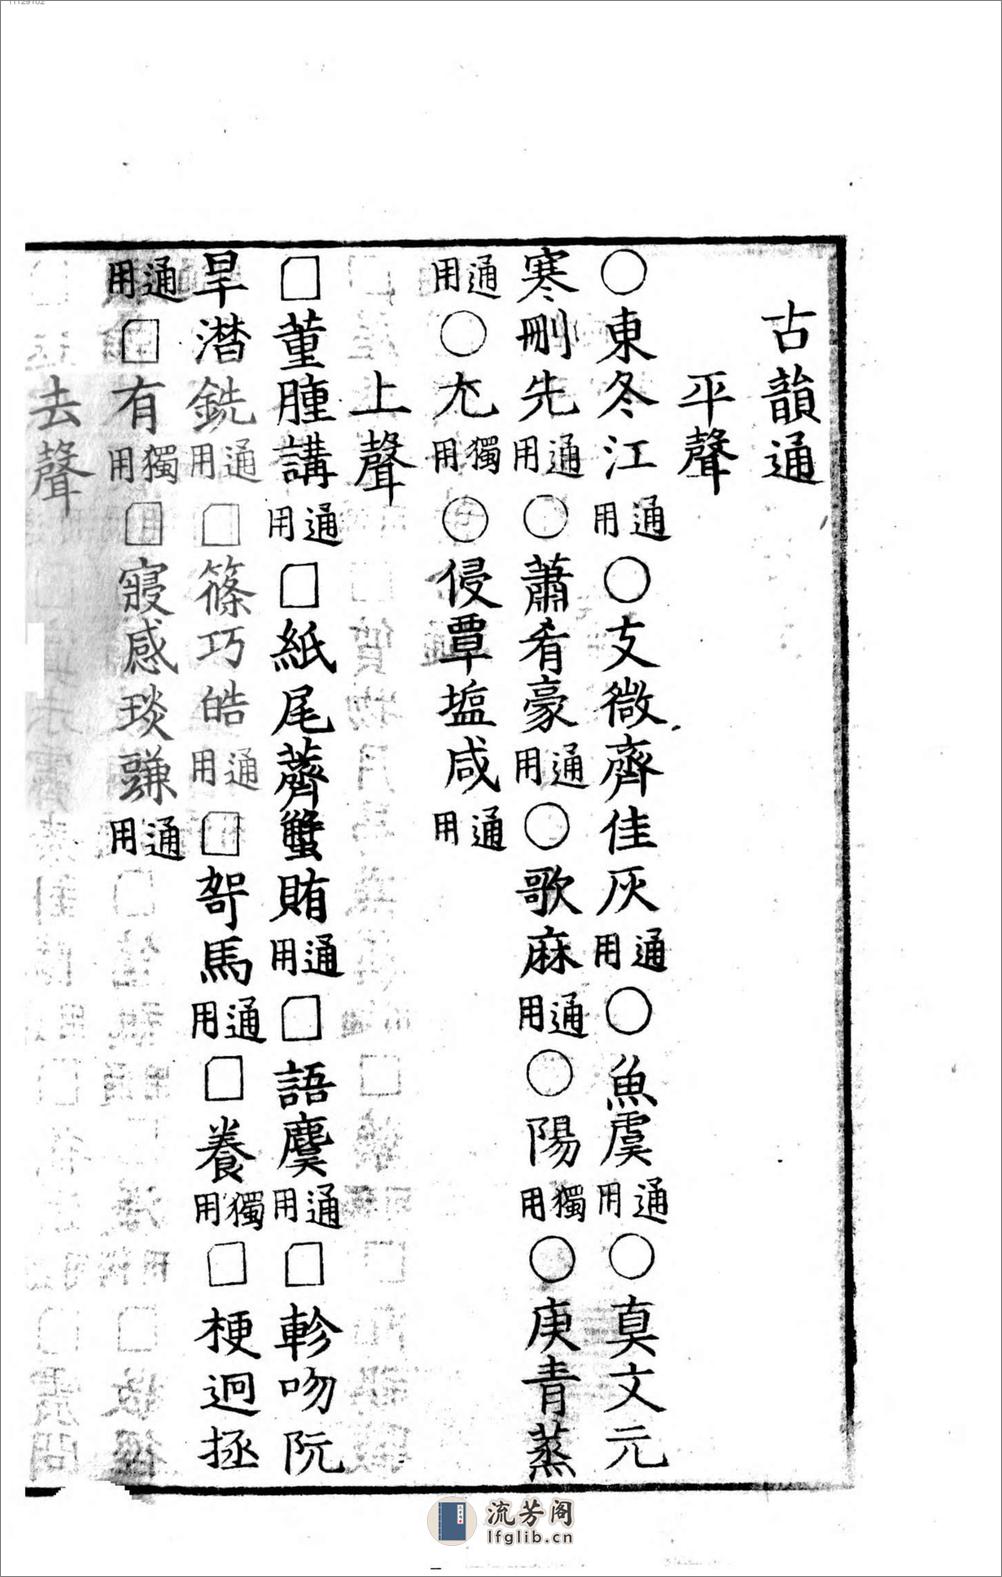 古韻通
平聲
○東冬江通用○支微齊佳灰通用○魚虞通用○真文元
寒刪先通用○蕭肴豪通用○歌麻通用○陽獨用○庚青蒸
通用○尢獨用○侵覃塩咸通用
上聲
□董腫講通用□紙尾薺蟹賄通用□語麌通用□軫吻阮
旱潸銑通用□篠巧皓通用□哿馬通用□養獨用□梗迥拯
通用□有獨用□寑感琰豏通用
去聲
流芳阁
lfglib.cn